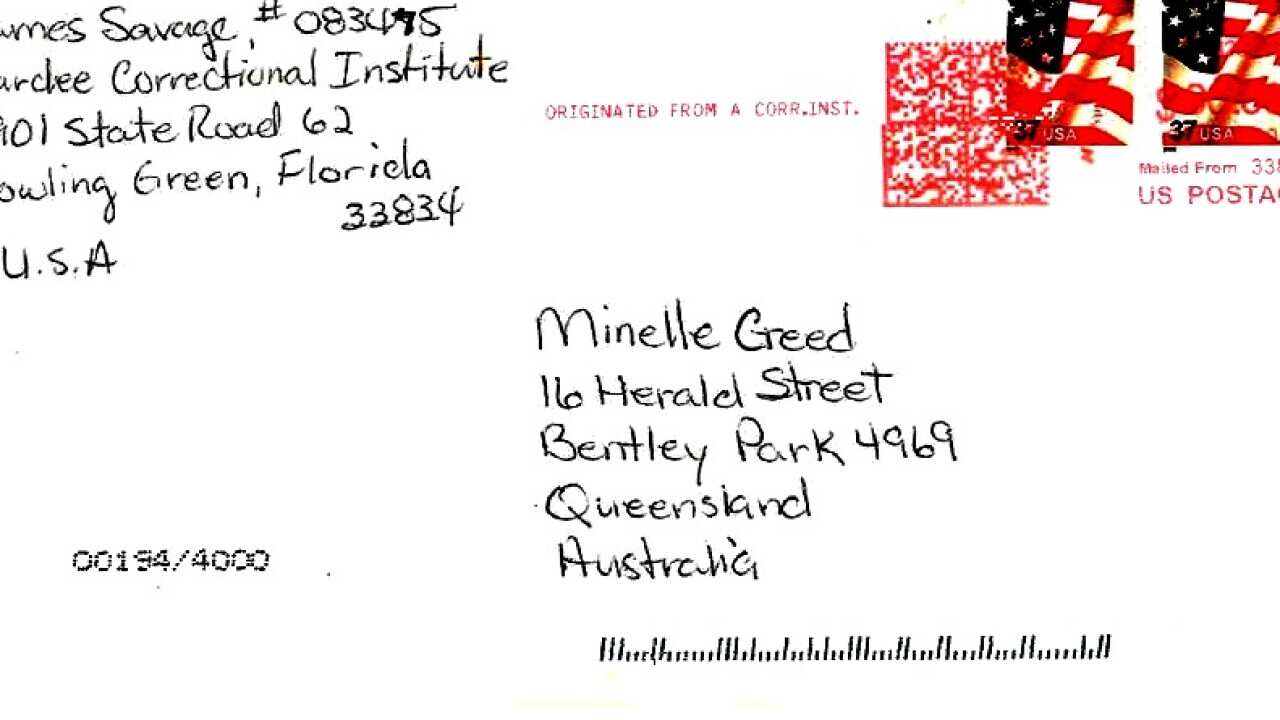 ames Savage, # 083475
ardee Correctional Institute
901 State Road 62
owling Green, Florida
33834
U.S.A
ORIGINATED FROM A CORR.INST.
37 USA
37 USA
Mailed From 338
US POSTAG
Minelle Creed
16 Herald Street
Bentley Park 4969
Queensland
Australia
00194/4000